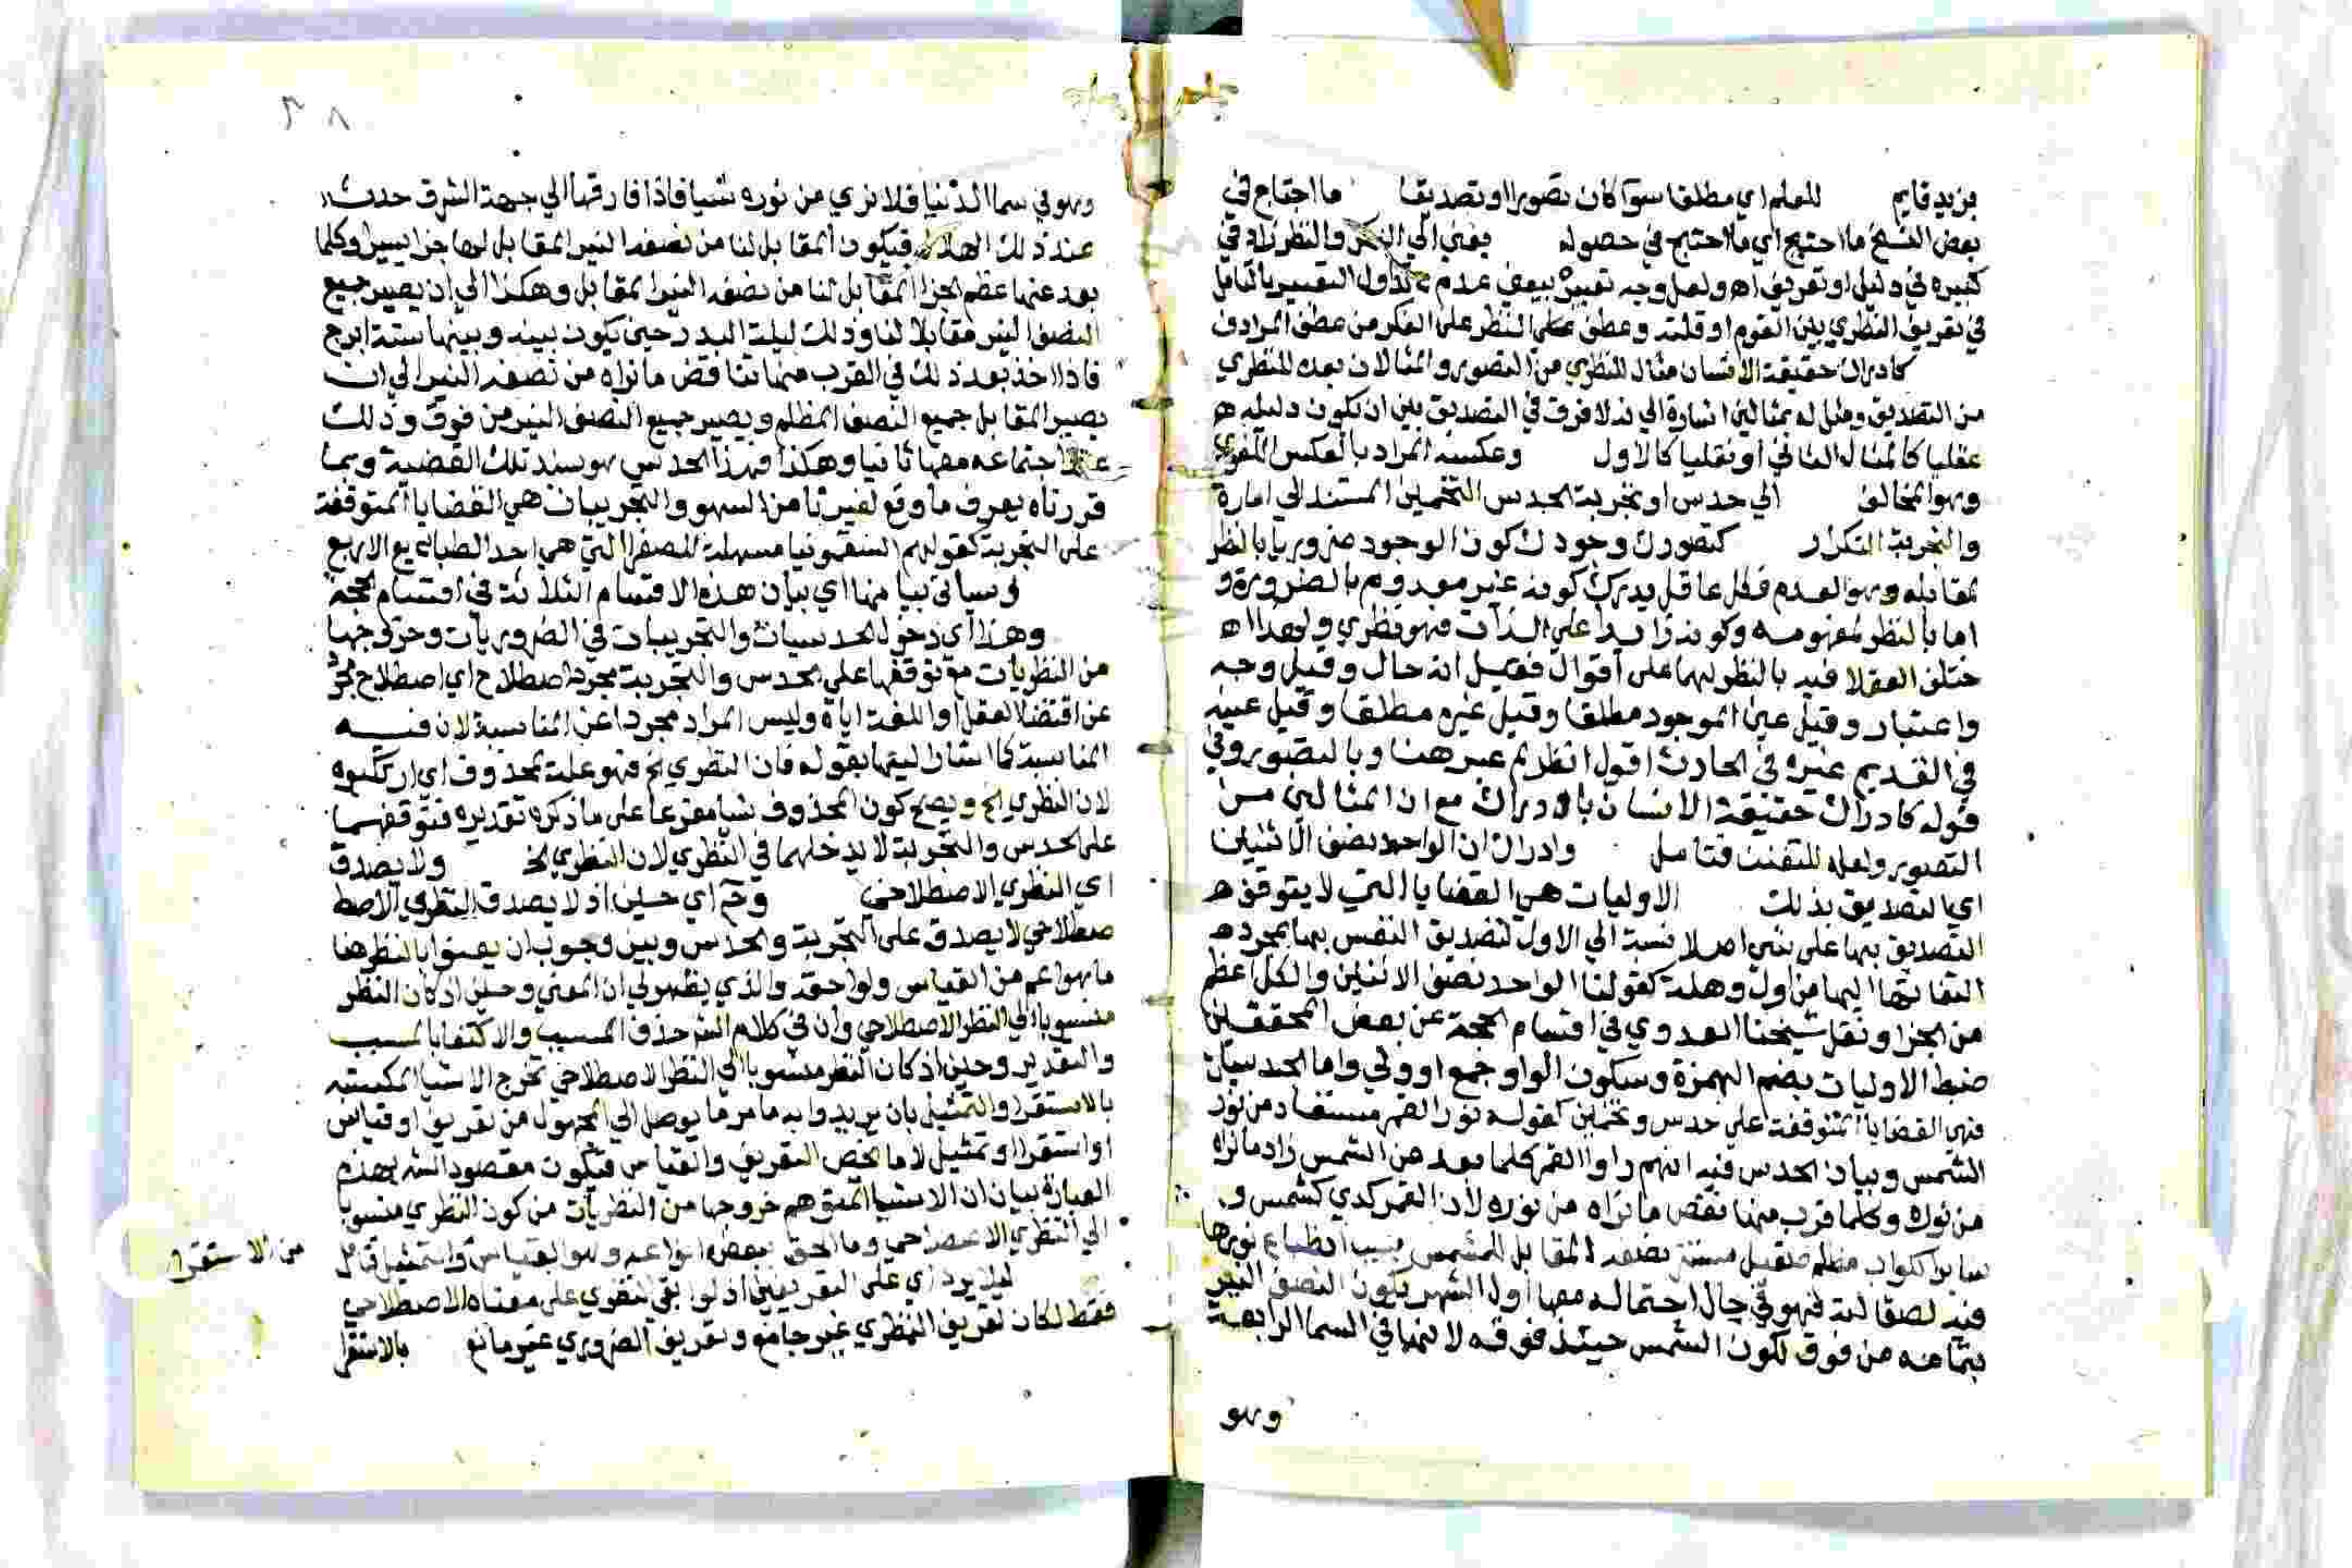 بزيد قايم للعلم اي مطلقا سوا كان تصورا او تصديقا ما احتاج في
بعض النسخ ما احتيج اي ما احتيج في حصوله يعني الي الفكر والنظر زاد في
كبيره في دليل او تعريف اه ولعل وجه تعبيره بيعني عدم تداول التفسير بالتامل
في تعريف النظري بين القوم او قلته وعطف النظر على الفكر من عطف المرادف
كادراك حقيقة الانسان مثال للنظري من التصور والمثالان بعده للنظري
من التصديق ومثل له بمثالين اشارة الي انه لا فرق في التصديق بين ان يكون دليله
عقليا كالمثال الثاني او نقليا كالاول وعكسه المراد بالعكس اللغوي
وهو المخالف الي حدس او تجربة الحدس التخمين المستند الي امارة
والتجربة التكرار كتصورك وجودك كون الوجود ضروريا بالنظر
لمقابله وهو العدم فكل عاقل يدرك كونه غير معدوم بالضرورة و
اما بالنظر لمفهومه وكونه زايدا على الذات فهو نظري ولهذا ا
ختلف العقلا فيه بالنظر لهما على اقوال فقيل انه حال وقيل وجه
واعتبار وقيل عين الموجود مطلقا وقيل غيره مطلقا وقيل عينه
في القديم غيره في الحادث اقول انظر لم عبر هنا وبالتصور وفي
قوله كادراك حقيقة الانسان بالادراك مع ان المثالين من
التصور ولعله للتفنن فتامل وادراك ان الواحد نصف الاثنين
اي التصديق بذلك الاوليات هي القضايا التي لا يتوقف
التصديق بها على شي اصلا نسبة الي الاول لتصديق النفس بها بمجرد
التفاتها اليها من اول وهلة كقولنا الواحد نصف الاثنين والكل اعظم
من الجزا ونقل شيخنا العدوي في اقسام الحجة عن بعض المحققين
ضبط الاوليات بضم الهمزة وسكون الواو جمع اوولي واما الحدسيات
فهي القضايا المتوقفة على حدس وتخمين كقوله نور القمر مستفاد من نور
الشمس وبيان الحدس فيه انهم راوا القمر كلما بعد عن الشمس زاد ما نراه
من نوره وكلما قرب منها نقص ما نراه من نوره لان القمر كدي كشمس و
ساير الكواكب مظلم صقيل نصفه المقابل للشمس بسبب انطباع نورها
فيه لصقالته فهو في حال اجتماله معها اول الشهر يكون النصف النير
بتمامه من فوق لكون الشمس حينئذ فوقه لانها في السما الرابعة
وهو
وهو في سما الدنيا فلا نري من نوره شيا فاذا فارقها الي جهة الشرق حدث
عند ذلك الهلال فيكون المقابل لنا من نصفه النير المقابل لها جزا يسيرا وكلما
بعد عنها عظم الجزا المقابل لنا من نصفه النير المقابل وهكذا الي ان يصير جميع
النصف النير مقابلا لنا وذلك ليلة البدر حين يكون بينه وبينها ستة ابرج
فاذا اخذ بعد ذلك في القرب منها تناقص ما نراه من نصفه النير الي ان
يصير المقابل جميع النصف المظلم ويصير جميع النصف النير من فوق وذلك
عند اجتماعه معها ثانيا وهكذا فهذا الحدس هو سند تلك القضية وبما
قررناه يعرف ما وقع لغيرنا من السهو والتجريبات هي القضايا المتوقفة
على التجربة كقولهم السقمونيا مسهلة للصفرا التي هي احد الطبايع الاربع
وسياتي بيانها اي بيان هذه الاقسام الثلاثة في اقسام الحجة
وهذا اي دخول الحدسيات والتجريبات في الضروريات وخروجها
من النظريات مع توقفها على الحدس والتجربة مجرد اصطلاح اي اصطلاح مجرد
عن اقتضا العقل او اللغة اياه وليس المراد مجردا عن المناسبة لان فيه
المناسبة كما اشار اليها بقوله فان النظري الخ فهو علة لمحذوف اي ارتكبوه
لان النظري الخ ويصح كون المحذوف شيا مفرعا على ما ذكره تقديره فتوقفهما
على الحدس والتجربة لا يدخلهما في النظري لان النظري الخ ولا يصدق
اي النظري الاصطلاحي وح اي حين اذ لا يصدق النظري الاصط
صطلاحي لا يصدق على التجربة والحدس وبين وجوب ان يعنوا بالنظر هنا
ما هو اعم من القياس ولواحقه والذي يظهر لي ان المعني وحين اذ كان النظر
منسوبا الي النظر الاصطلاحي وان في كلام الشر حذف المسبب والاكتفا بالسبب
والتقدير وحين اذ كان النظر منسوبا الي النظر الاصطلاحي تخرج الاشيا المكتسبة
بالاستقرا والتمثيل بان يريدوا به ما مر ما يوصل الي المجهول من تعريف او قياس
او استقرا او تمثيل لا ما يخص التعريف والقياس فيكون مقصود الشر بهذه
العبارة بيان ان الاشيا المتوهم خروجها من النظريات من كون النظري منسوبا
الي النظري الاصطلاحي وما الحق ببعض انواعه وهو القياس والتمثيل قائل
من الاستقرا
ليلا يرد اي على التعريفين اذ لو ابقي النظري على معناه الاصطلاحي
فقط لكان تعريف النظري غير جامع وتعريف الضروري غير مانع بالاستقرا